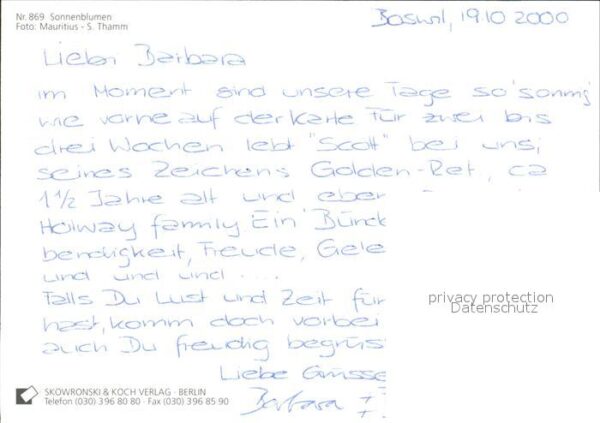 Nr. 869 Sonnenblumen
Foto: Mauritius - S. Thamm
Boswil, 19.10 2000
Liebe Barbara
im Moment sind unsere Tage so "sonnig"
wie vorne auf der Karte Für zwei bis
drei Wochen lebt "Scott" bei uns,
seines Zeichens Golden-Ret, ca
1 1/2 Jahre alt und eben
family Ein Bünd
bendigkeit, Freude, Gele
und und und ....
Falls Du Lust und Zeit für
hast, komm doch vorbei
auch Du freudig begrüs
Liebe Grüsse
Barbara
privacy protection
Datenschutz
SKOWRONSKI & KOCH VERLAG · BERLIN
Telefon (030) 396 80 80 · Fax (030) 396 85 90